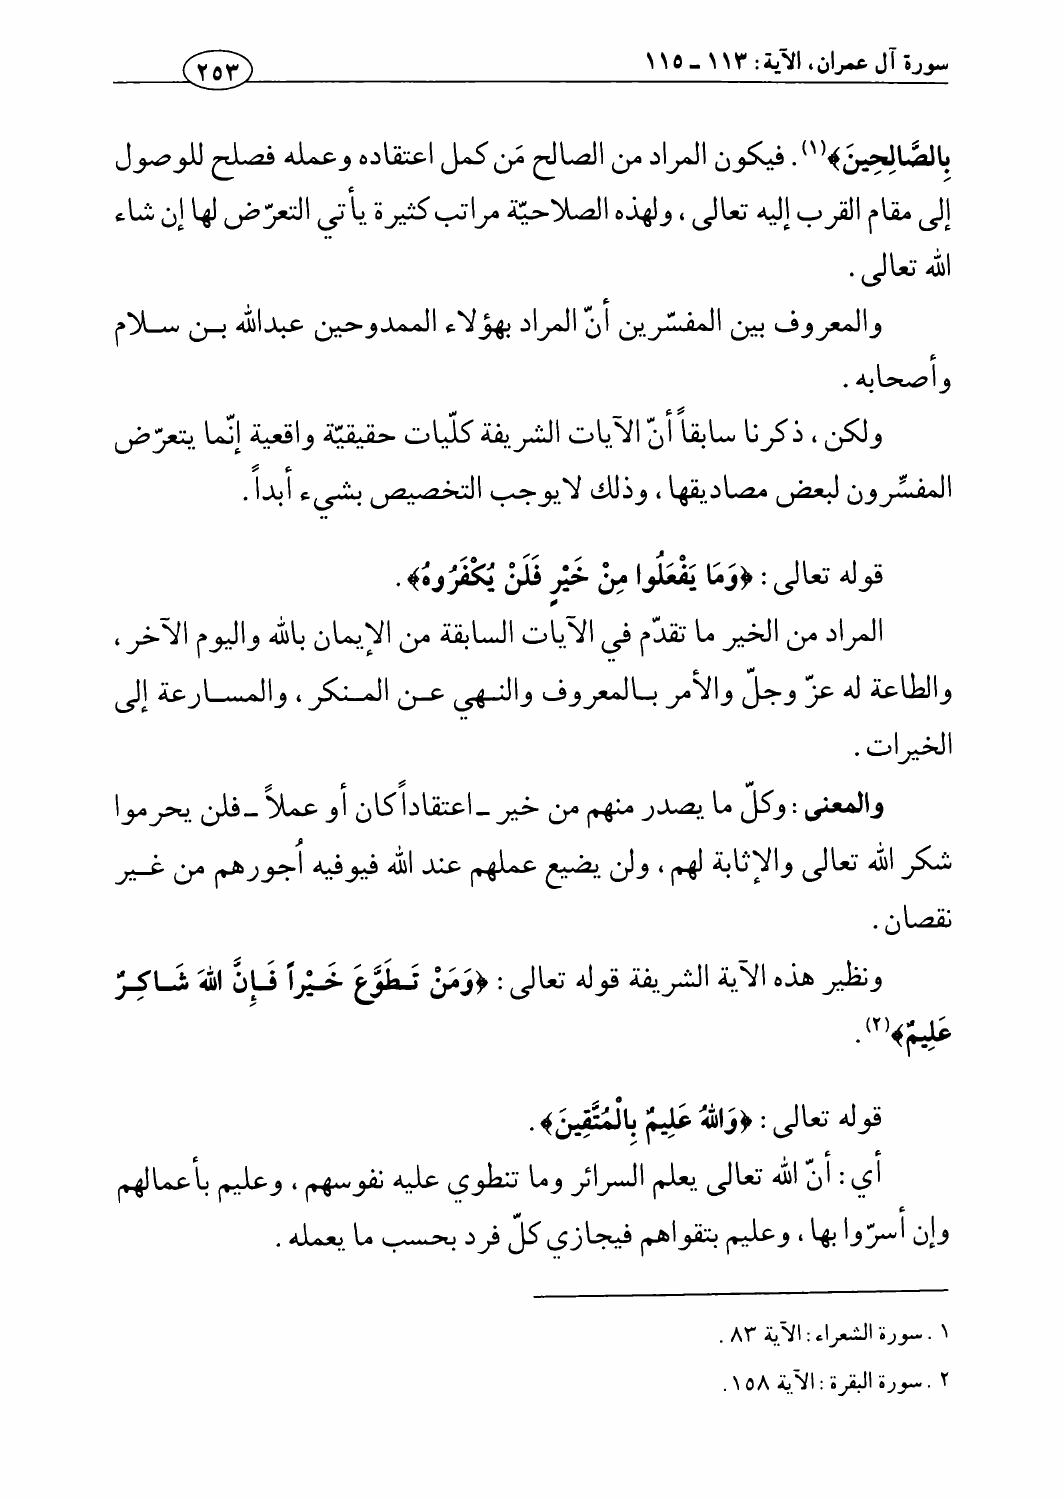 سورة آل عمران، الآية: ١١٣ ـ ١١٥
٢٥٣
بِالصَّالِحِينَ﴾(١). فيكون المراد من الصالح مَن كمل اعتقاده وعمله فصلح للوصول
إلى مقام القرب إليه تعالى، ولهذه الصلاحيّة مراتب كثيرة يأتي التعرّض لها إن شاء
الله تعالى.
والمعروف بين المفسّرين أنّ المراد بهؤلاء الممدوحين عبدالله بن سلام
وأصحابه.
ولكن، ذكرنا سابقاً أنّ الآيات الشريفة كلّيات حقيقيّة واقعية إنّما يتعرّض
المفسِّرون لبعض مصاديقها، وذلك لا يوجب التخصيص بشيء أبداً.
قوله تعالى: ﴿وَمَا يَفْعَلُوا مِنْ خَيْرٍ فَلَنْ يُكْفَرُوهُ﴾.
المراد من الخير ما تقدّم في الآيات السابقة من الإيمان بالله واليوم الآخر،
والطاعة له عزّ وجلّ والأمر بالمعروف والنهي عن المنكر، والمسارعة إلى
الخيرات.
والمعنى: وكلّ ما يصدر منهم من خير ـ اعتقاداً كان أو عملاً ـ فلن يحرموا
شكر الله تعالى والإثابة لهم، ولن يضيع عملهم عند الله فيوفيه أُجورهم من غير
نقصان.
ونظير هذه الآية الشريفة قوله تعالى: ﴿وَمَنْ تَطَوَّعَ خَيْراً فَإِنَّ اللهَ شَاكِرٌ
عَلِيمٌ﴾(٢).
قوله تعالى: ﴿وَاللهُ عَلِيمٌ بِالْمُتَّقِينَ﴾.
أي: أنّ الله تعالى يعلم السرائر وما تنطوي عليه نفوسهم، وعليم بأعمالهم
وإن أسرّوا بها، وعليم بتقواهم فيجازي كلّ فرد بحسب ما يعمله.
١. سورة الشعراء: الآية ٨٣.
٢. سورة البقرة: الآية ١٥٨.